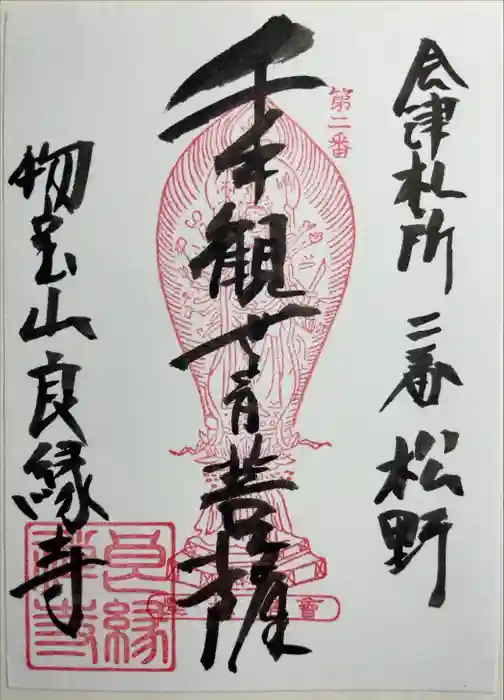 会津札所二番 松野
第二番
千手観世音菩薩
物宝山良縁寺
良縁
禅寺